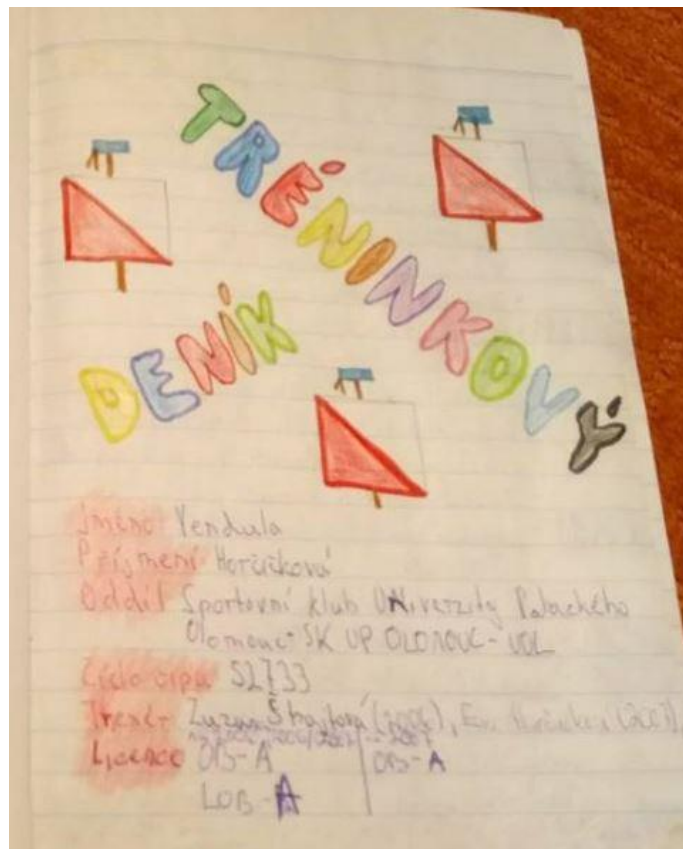 TRÉNINKOVÝ
DENÍK
Jméno Vendula
Příjmení Horčičková
Oddíl Sportovní klub UNiverzity Palackého
Olomouc - SK UP OLOMOUC - UOL
Číslo čipu 52733
Trenér Zuzana Štajfová (2006), Eva (2007)
Licence OB-A OB-A
LOB-A